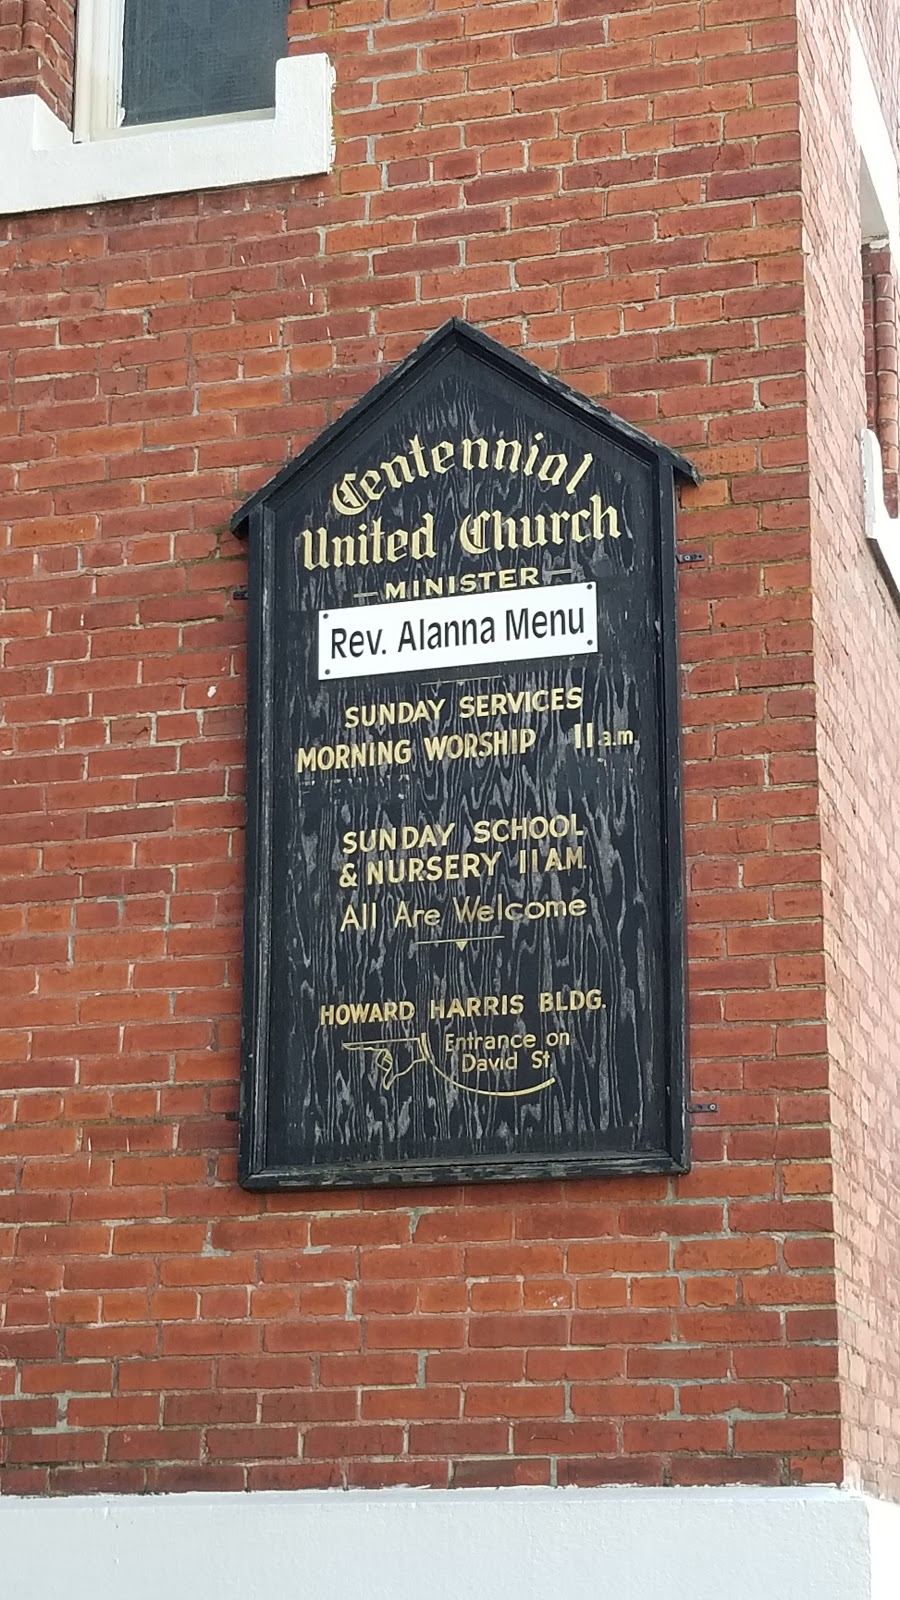 Centennial
United Church
MINISTER
Rev. Alanna Menu
SUNDAY SERVICES
MORNING WORSHIP 11 a.m.
SUNDAY SCHOOL
& NURSERY 11 A.M.
All Are Welcome
HOWARD HARRIS BLDG.
Entrance on
David St.